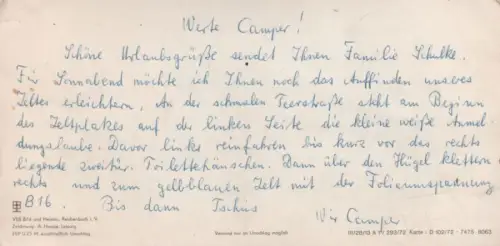 Werte Camper!
Schöne Urlaubsgrüße sendet Ihnen Familie Schulke.
Für Sonnabend möchte ich Ihnen noch das Auffinden unseres
Zeltes erleichtern. An der schmalen Teerstraße steht am Beginn
des Zeltplatzes auf der linken Seite die kleine weiße Anmel-
dungslaube. Davor links reinfahren bis kurz vor das rechts
liegende zweitür. Toilettehäuschen. Dann über den Hügel klettern
rechts und zum gelbblauen Zelt mit der Folienumspannung
B16. Bis dann Tschüs
Wir Camper
VEB Bild und Heimat, Reichenbach i. V.
Zeichnung:
EVP 0,25 M einschließlich Umschlag
Versand nur im Umschlag möglich
Karte